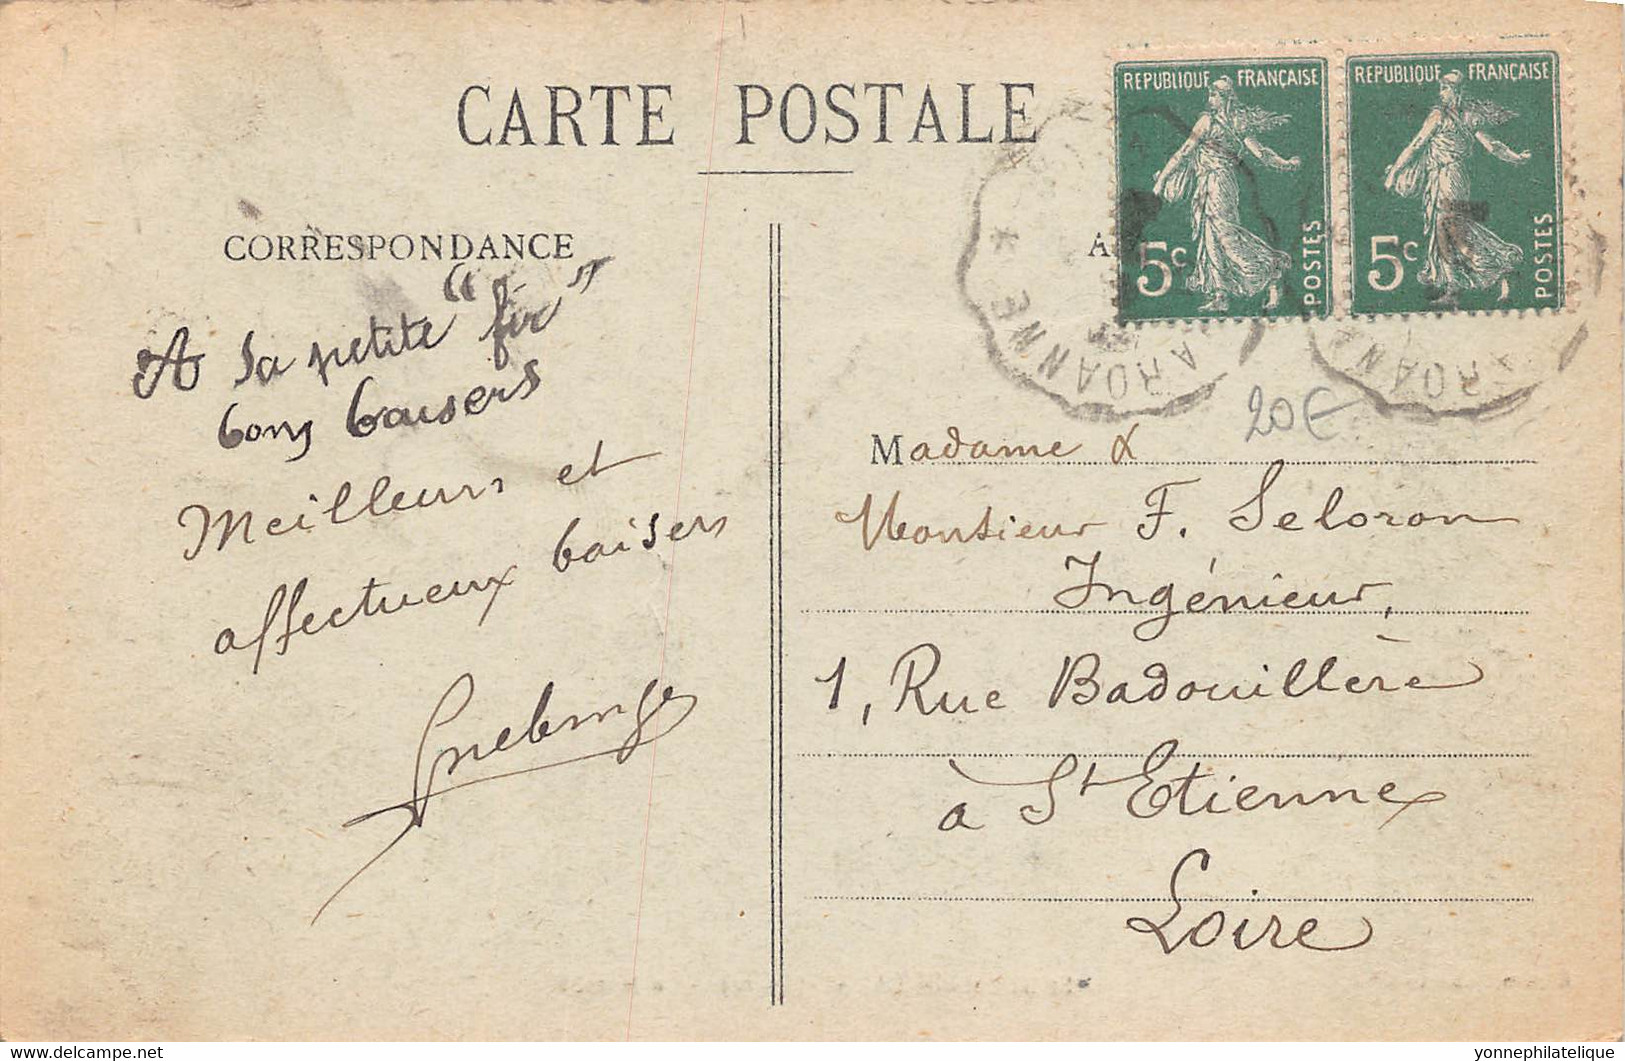 CARTE POSTALE
CORRESPONDANCE
A sa petite
bons baisers
Meilleurs et
affectueux baisers
REPUBLIQUE FRANÇAISE
5c
POSTES
REPUBLIQUE FRANÇAISE
5c
POSTES
ROANNE
20€
Madame &
Monsieur F. Seloron
Ingénieur,
1, Rue Badouillère
à St Etienne
Loire
yonnephilatelique
www.delcampe.net